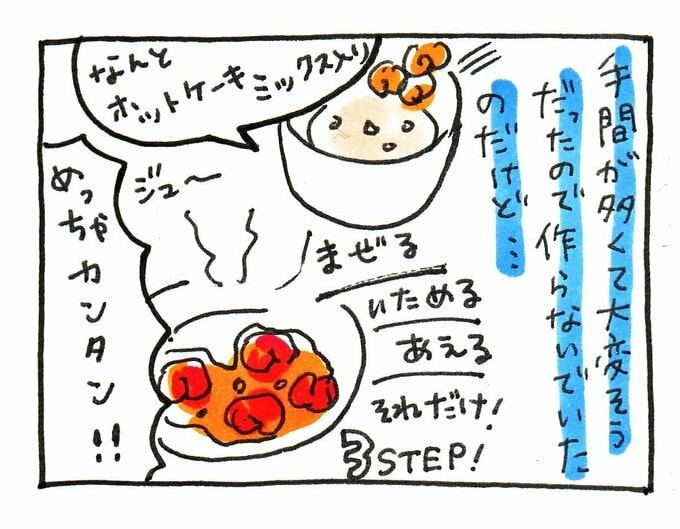 手間が多くて大変そう
だったので作らないでいた
のだけど…
なんと
ホットケーキミックス入り
まぜる
いためる
あえる
それだけ！
3STEP！
ジュ〜
めっちゃカンタン！！